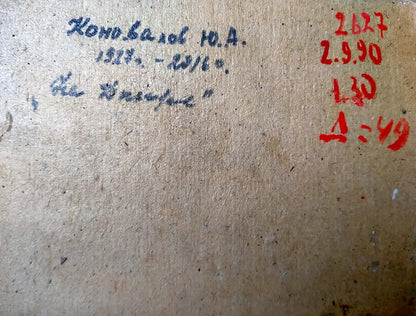 Коновалов Ю.А.
1927г. - 2016г.
„На Днепре"
2627
2.9.90
130
Д = 49